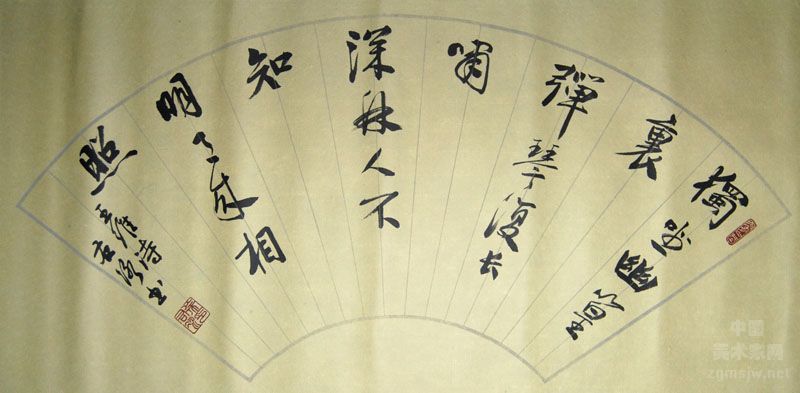 獨坐幽篁
裏
彈琴復长
嘯
深林人不
知
明月来相
照
王維诗
书
中国
美术家网
zgmsjw.net